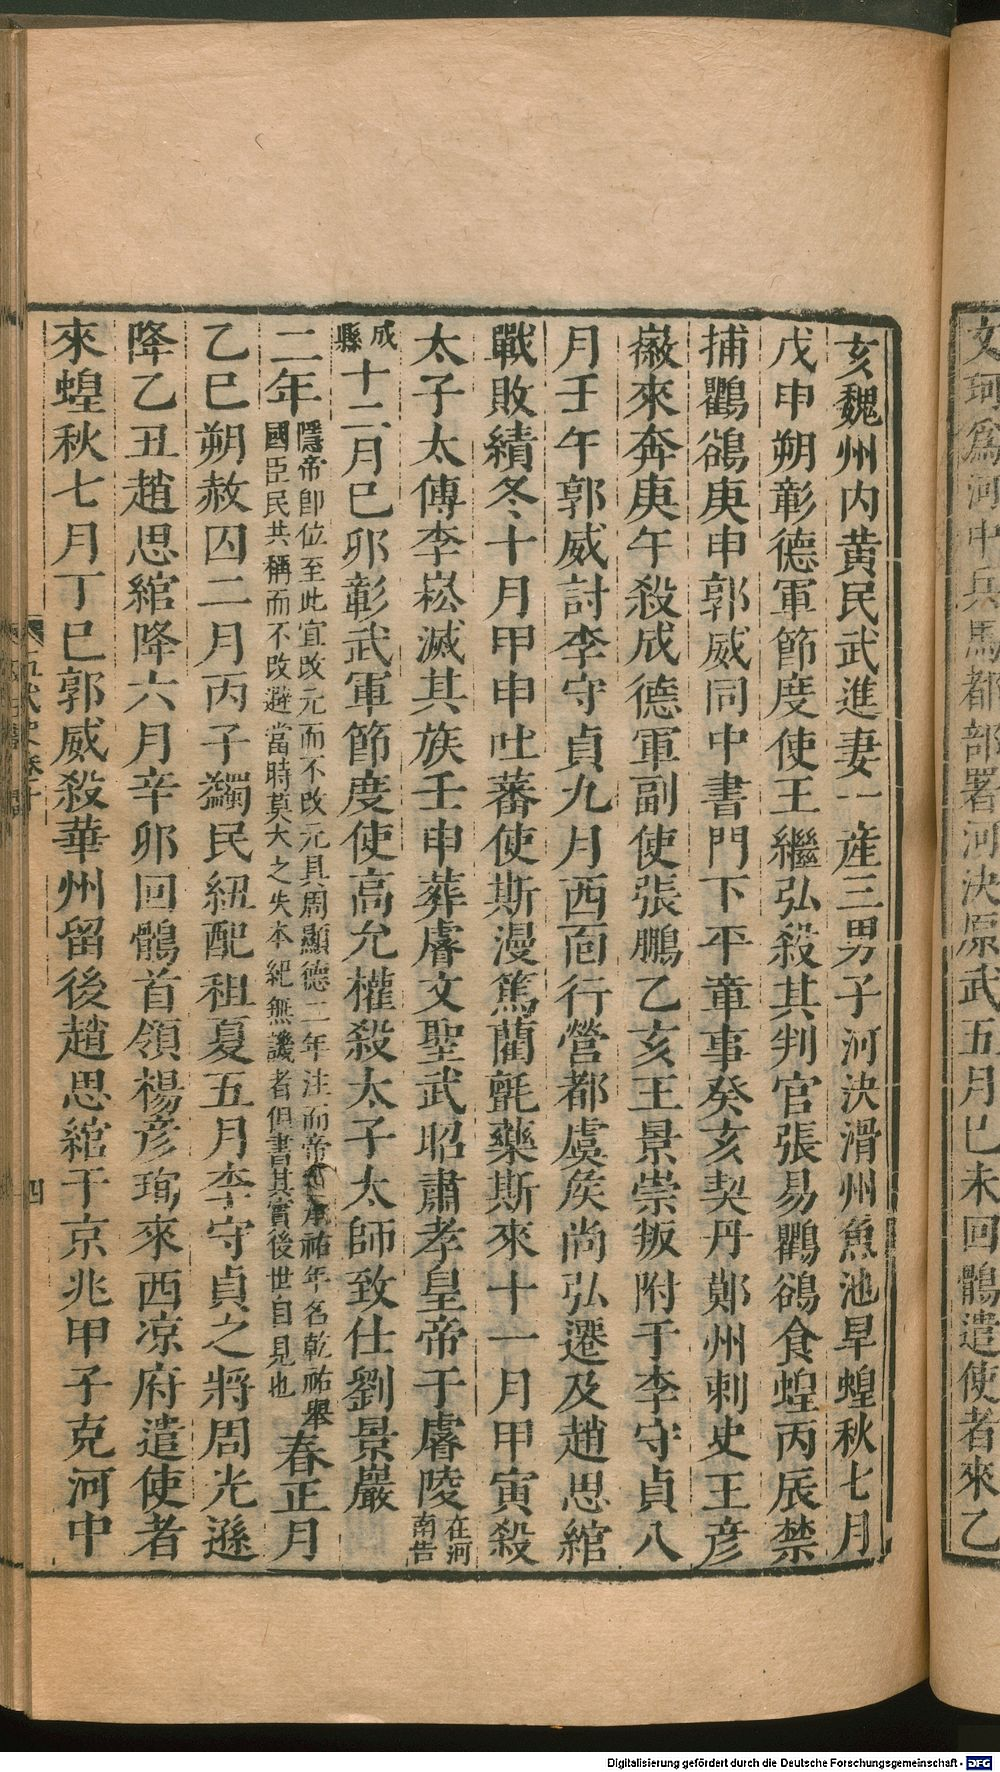 文珂爲河中兵馬都部署河決原武五月已未回鶻遣使者來乙
亥魏州内黄民武進妻一産三男子河決滑州魚池旱蝗秋七月
戊申朔彰德軍節度使王繼弘殺其判官張易鸜鵒食蝗丙辰禁
捕鸜鵒庚申郭威同中書門下平章事癸亥契丹鄭州刺史王彦
徽來奔庚午殺成德軍副使張鵬乙亥王景崇叛附于李守貞八
月壬午郭威討李守貞九月西面行營都虞矦尚弘遷及趙思綰
戰敗績冬十月甲申吐蕃使斯漫篤藺氈藥斯來十一月甲寅殺
太子太傅李崧滅其族壬申葬睿文聖武昭肅孝皇帝于睿陵在河南告
成縣十二月已卯彰武軍節度使高允權殺太子太師致仕劉景巖
二年隱帝卽位至此宜改元而不改元具周顯德二年注而帝承祐年名乾祐舉國臣民共稱而不改避當時莫大之失本紀無譏者但書其實後世自見也春正月
乙巳朔赦囚二月丙子蠲民紐配租夏五月李守貞之將周光遜
降乙丑趙思綰降六月辛卯回鶻首領楊彦珣來西凉府遣使者
來蝗秋七月丁巳郭威殺華州留後趙思綰于京兆甲子克河中
五代史卷十
四
Digitalisierung gefördert durch die Deutsche Forschungsgemeinschaft - DFG